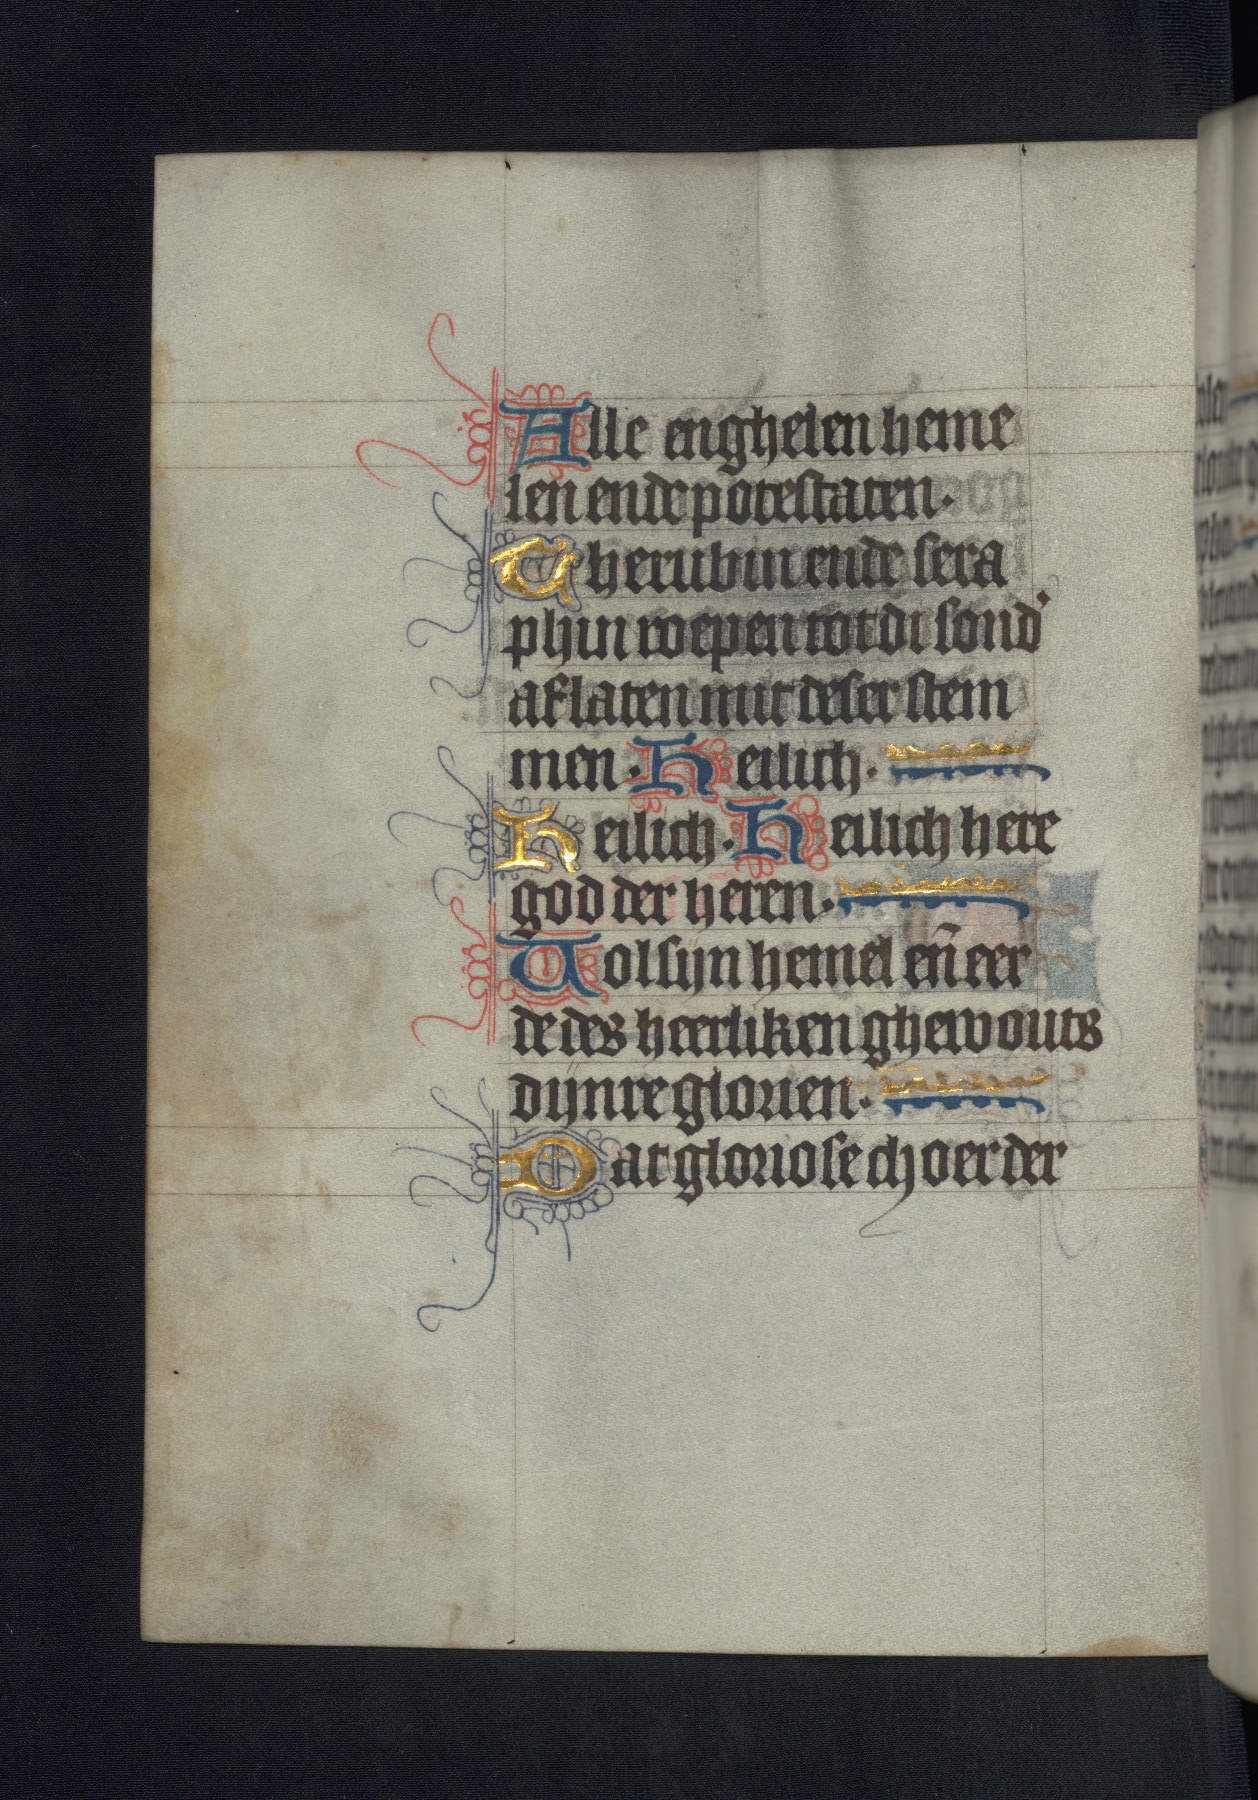 Alle enghelen heme
len ende potestaten.
Cherubin ende sera
phin roepen tot di sond'
aflaten mit deser stem
men. Heilich.
Heilich. Heilich here
god der heren.
Vol sijn hemel en̄ eer
de des heerliken ghewouts
dijnre glorien.
Dat gloriose choer der